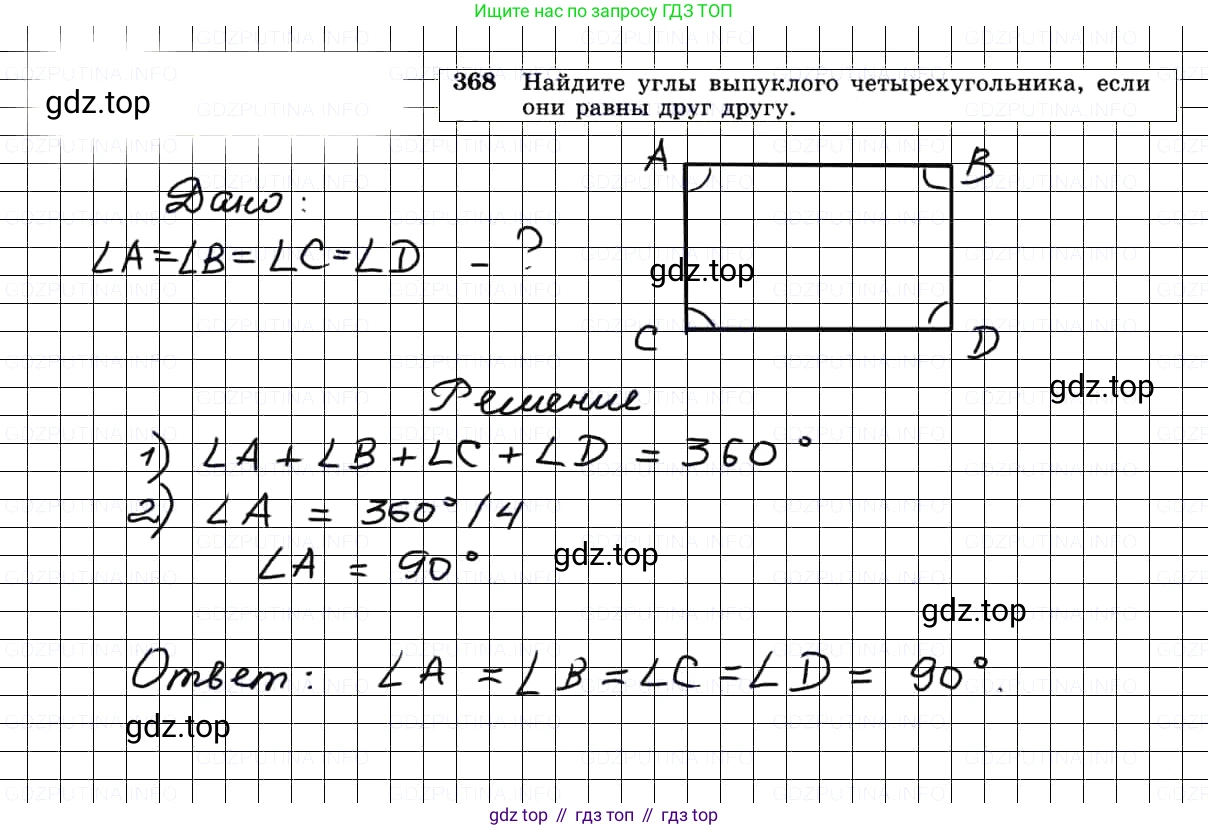 Ищите нас по запросу ГДЗ ТОП
368 Найдите углы выпуклого четырехугольника, если
они равны друг другу.
gdz.top
A B
Дано:
∠A=∠B=∠C=∠D - ?
gdz.top
C D
gdz.top
Решение
1) ∠A + ∠B + ∠C + ∠D = 360°
2) ∠A = 360°/4
∠A = 90°
gdz.top
gdz.top
Ответ: ∠A = ∠B = ∠C = ∠D = 90°.
gdz.top
gdz.top // гдз топ // гдз.top